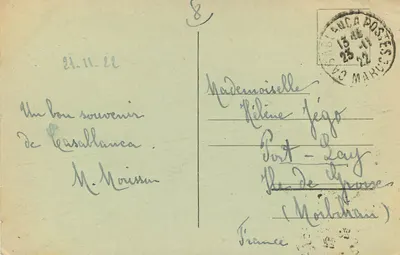 8
CASABLANCA POSTES
13 45
23 - 11
22
MAROC
21.11.22
Un bon souvenir
de Casablanca.
Mademoiselle
Hélène Jégo
Port-Lay
Ile de Groix
(Morbihan)
France